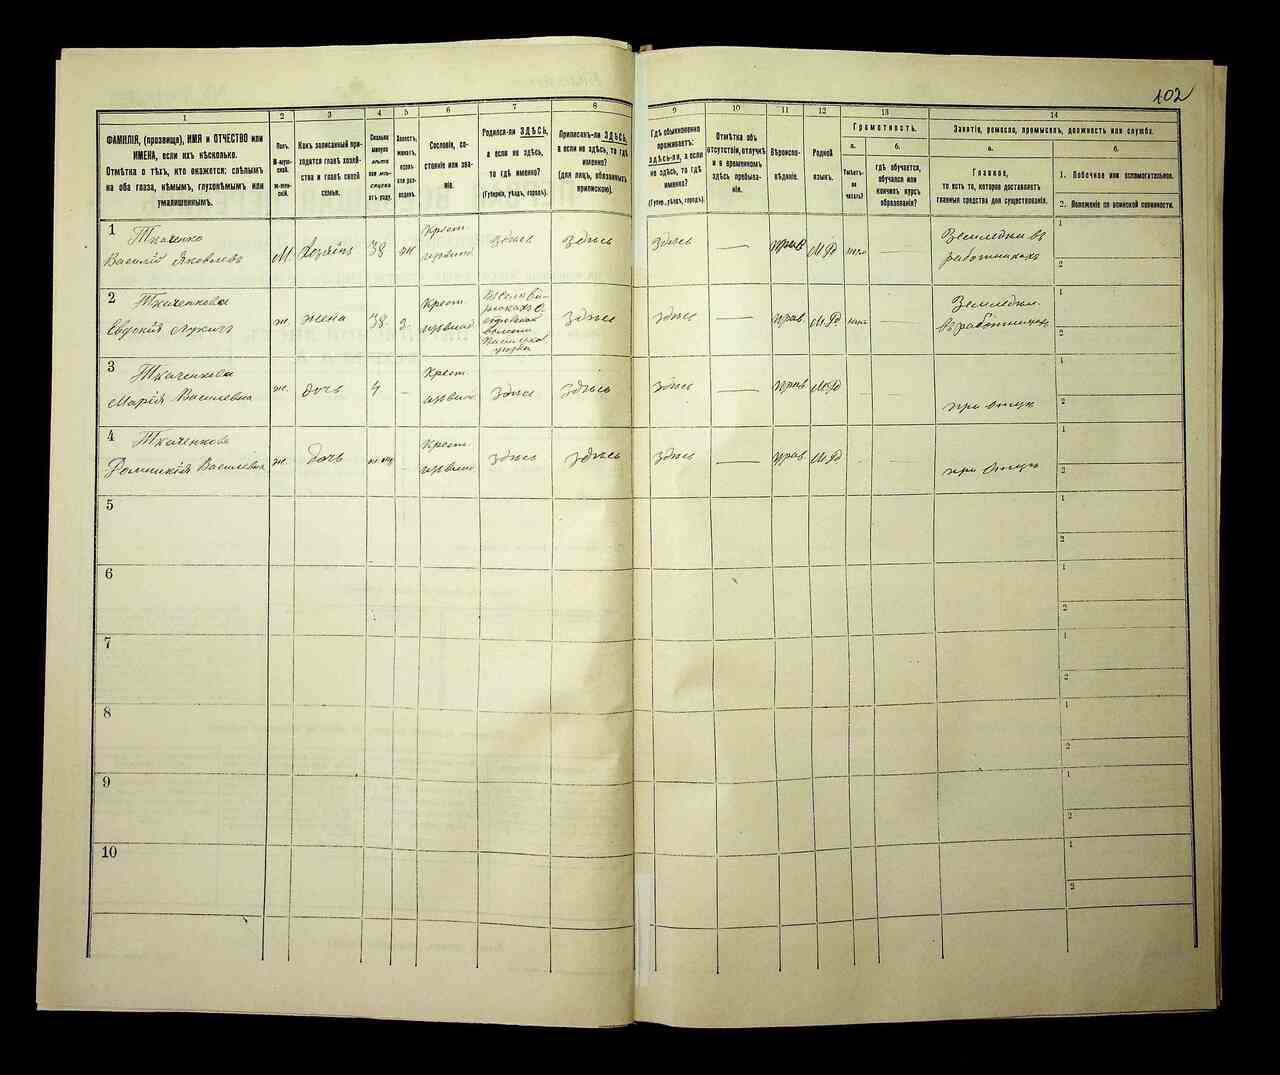 102
1
2
3
4
5
6
7
8
9
10
11
12
13
14
ФАМИЛІЯ, (прозвище), ИМЯ и ОТЧЕСТВО или
ИМЕНА, если ихъ нѣсколько.
Отмѣтка о тѣхъ, кто окажется: слѣпымъ
на оба глаза, нѣмымъ, глухонѣмымъ или
умалишеннымъ.
Полъ.
М-муж-
ской.
Ж-жен-
скій.
Какъ записанный при-
ходится главѣ хозяй-
ства и главѣ своей
семьи.
Сколько
минуло
лѣтъ
или мѣ-
сяцевъ
отъ роду.
Холостъ,
женатъ,
вдовъ
или раз-
веденъ.
Сословіе, со-
стояніе или зва-
ніе.
Родился-ли ЗДѢСЬ,
а если не здѣсь,
то гдѣ именно?
(Губернія, уѣздъ, городъ).
Приписанъ-ли ЗДѢСЬ,
а если не здѣсь, то гдѣ
именно?
(для лицъ, обязанныхъ
припискою).
Гдѣ обыкновенно
проживаетъ:
здѣсь-ли, а если
не здѣсь, то гдѣ
именно?
(Губер., уѣздъ, городъ).
Отмѣтка объ
отсутствіи, отлучкѣ
и о временномъ
здѣсь пребыва-
ніи.
Вѣроиспо-
вѣданіе.
Родной
языкъ.
Грамотность.
а.
Умѣетъ-
ли
читать?
б.
гдѣ обучается,
обучался или
кончилъ курсъ
образованія?
Занятіе, ремесло, промыселъ, должность или служба.
а.
Главное,
то есть то, которое доставляетъ
главныя средства для существованія.
б.
1. Побочное или вспомогательное.
2. Положеніе по воинской повинности.
1 Ткаченко
Василій Яковлевъ
М. Хозяинъ 38 ж
Крест.
здѣсь здѣсь здѣсь — прав М.Р
Земледѣл. въ
работникахъ
1
2
2 Ткаченкова
Евдокія Лукич
ж. жена 38 з
Крест.
здѣсь здѣсь — прав М.Р.
Земледѣл.
въ работницахъ
1
2
3 Ткаченкова
Марія Василевна
ж. дочь 4 –
Крест.
здѣсь здѣсь здѣсь — прав М.Р
при отцѣ
1
2
4 Ткаченкова
Василевна
ж. дочь –
Крест.
здѣсь здѣсь здѣсь — прав М.Р
при отцѣ
1
2
5
1
2
6
1
2
7
1
2
8
1
2
9
1
2
10
1
2